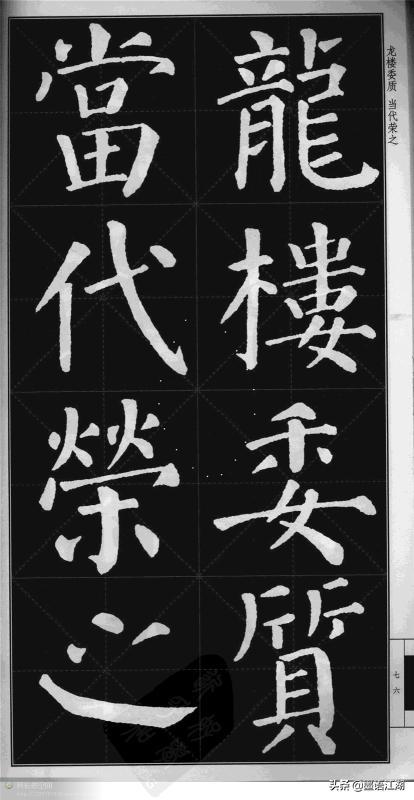 龍樓委質
當代榮之
龙楼委质 当代荣之
七六
头条@墨语江湖